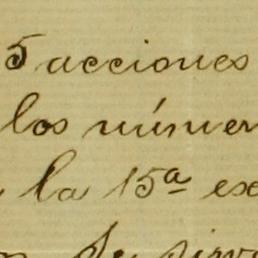 5 acciones
los númer
la 15ª ese